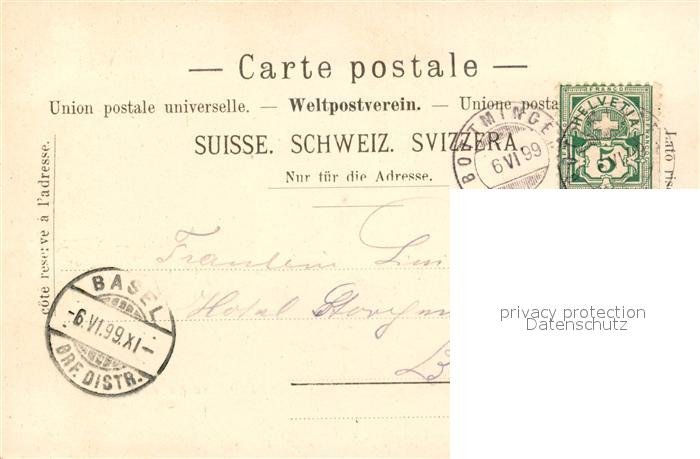 — Carte postale —
Union postale universelle. — Weltpostverein. — Unione posta
SUISSE. SCHWEIZ. SVIZZERA.
Nur für die Adresse.
côté réservé à l'adresse.
Lato ris
FRANCO
HELVETIA
5
BOTTMINGE
6 VI 99
Fräulein
Hotel
BASEL
-6.VI.99.XI-
BRF. DISTR.
privacy protection
Datenschutz